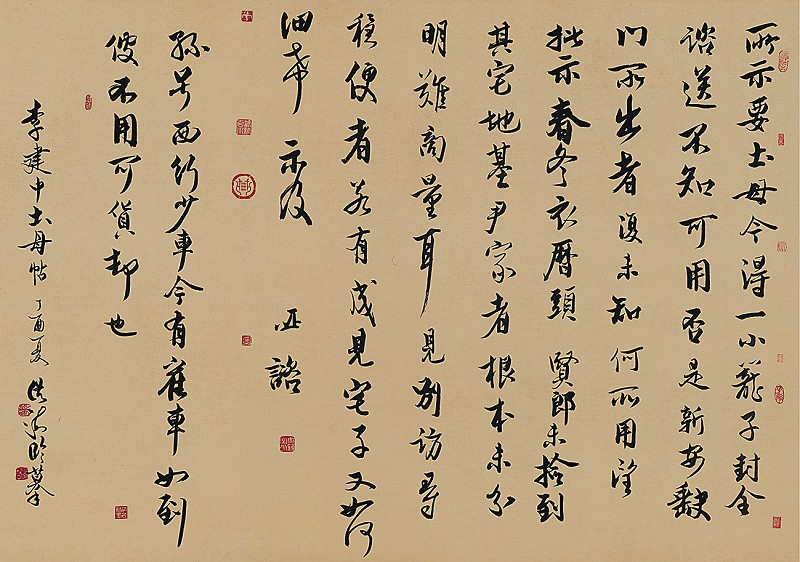 所示要土母今得一小籠子封全
諮送不知可用否是新安缺
门所出者復未知何所用望
批示春冬衣曆頭 賢郎未捡到
其宅地基尹家者根本未分
明難商量耳見別访尋
穏便者若有成見宅子又如何
细希 示及 匹 諮
孫号西行少車今有舊車如到
彼不用可貨却也
李建中土母帖 丁酉夏 临摹